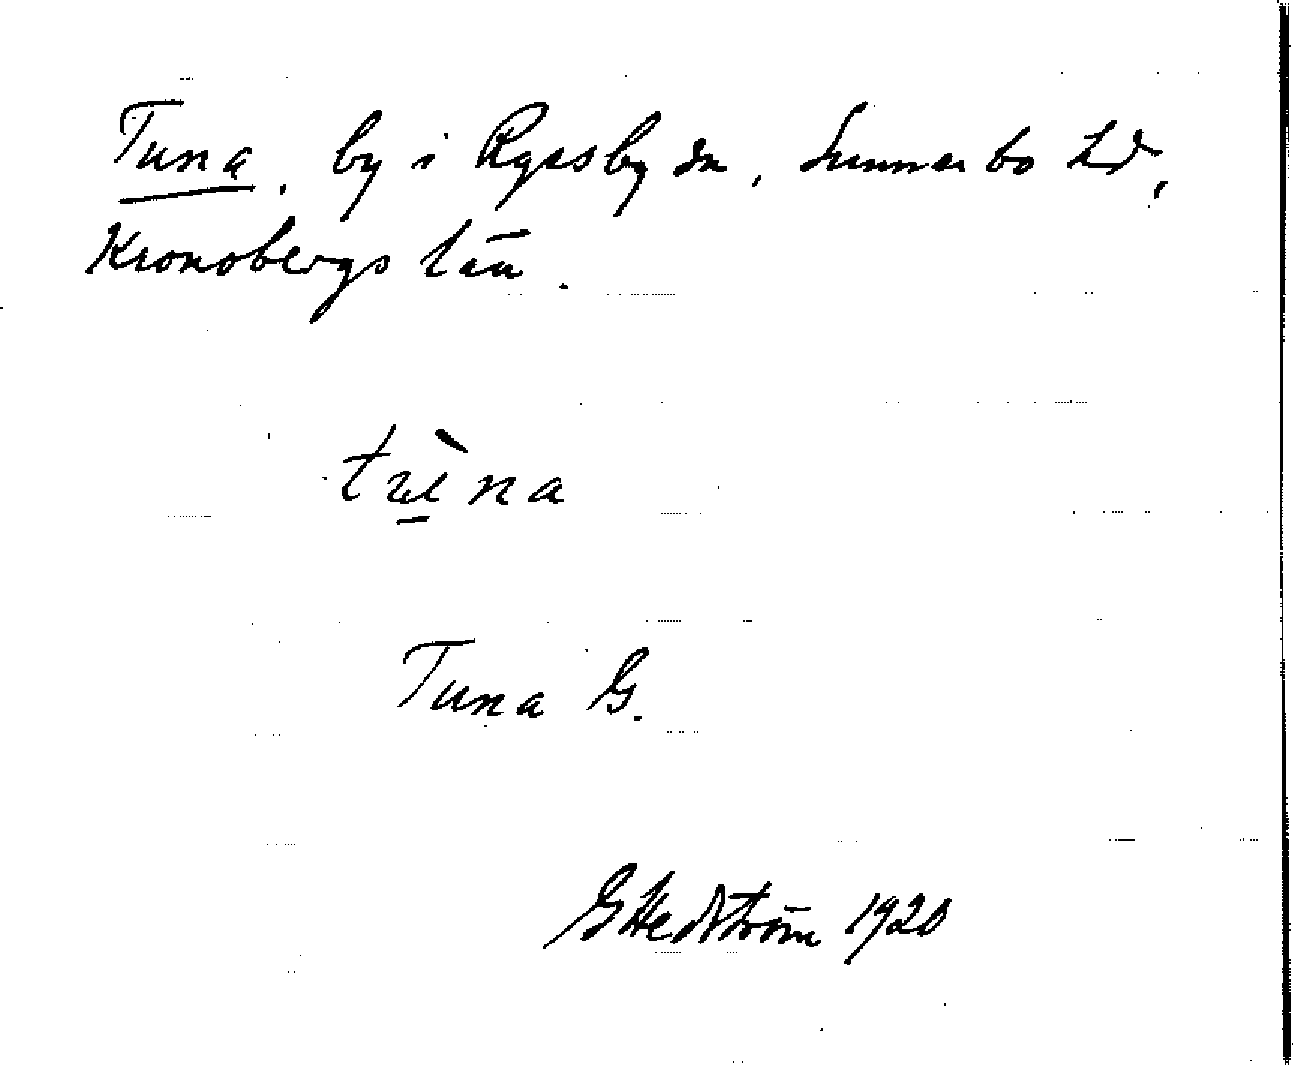 Tuna, by i Ryssby sn, Sunnerbo hd,
Kronobergs län.
Tuna G.
G Hedström 1920